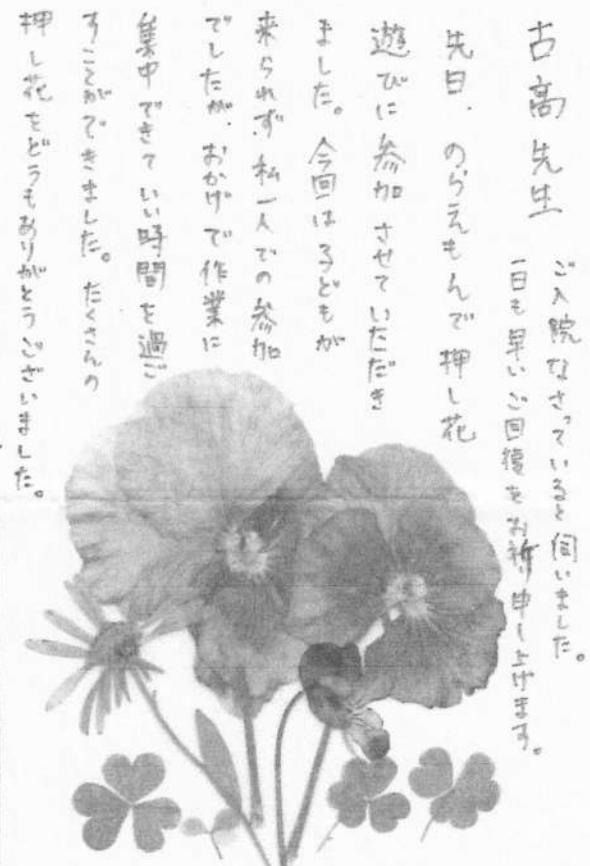 古高先生
ご入院なさっていると伺いました。
一日も早いご回復をお祈り申し上げます。
先日、のらえもんで押し花
遊びに参加させていただき
ました。今回は子どもが
来られず、私一人での参加
でしたが、おかげで作業に
集中できていい時間を過ご
すことができました。たくさんの
押し花をどうもありがとうございました。